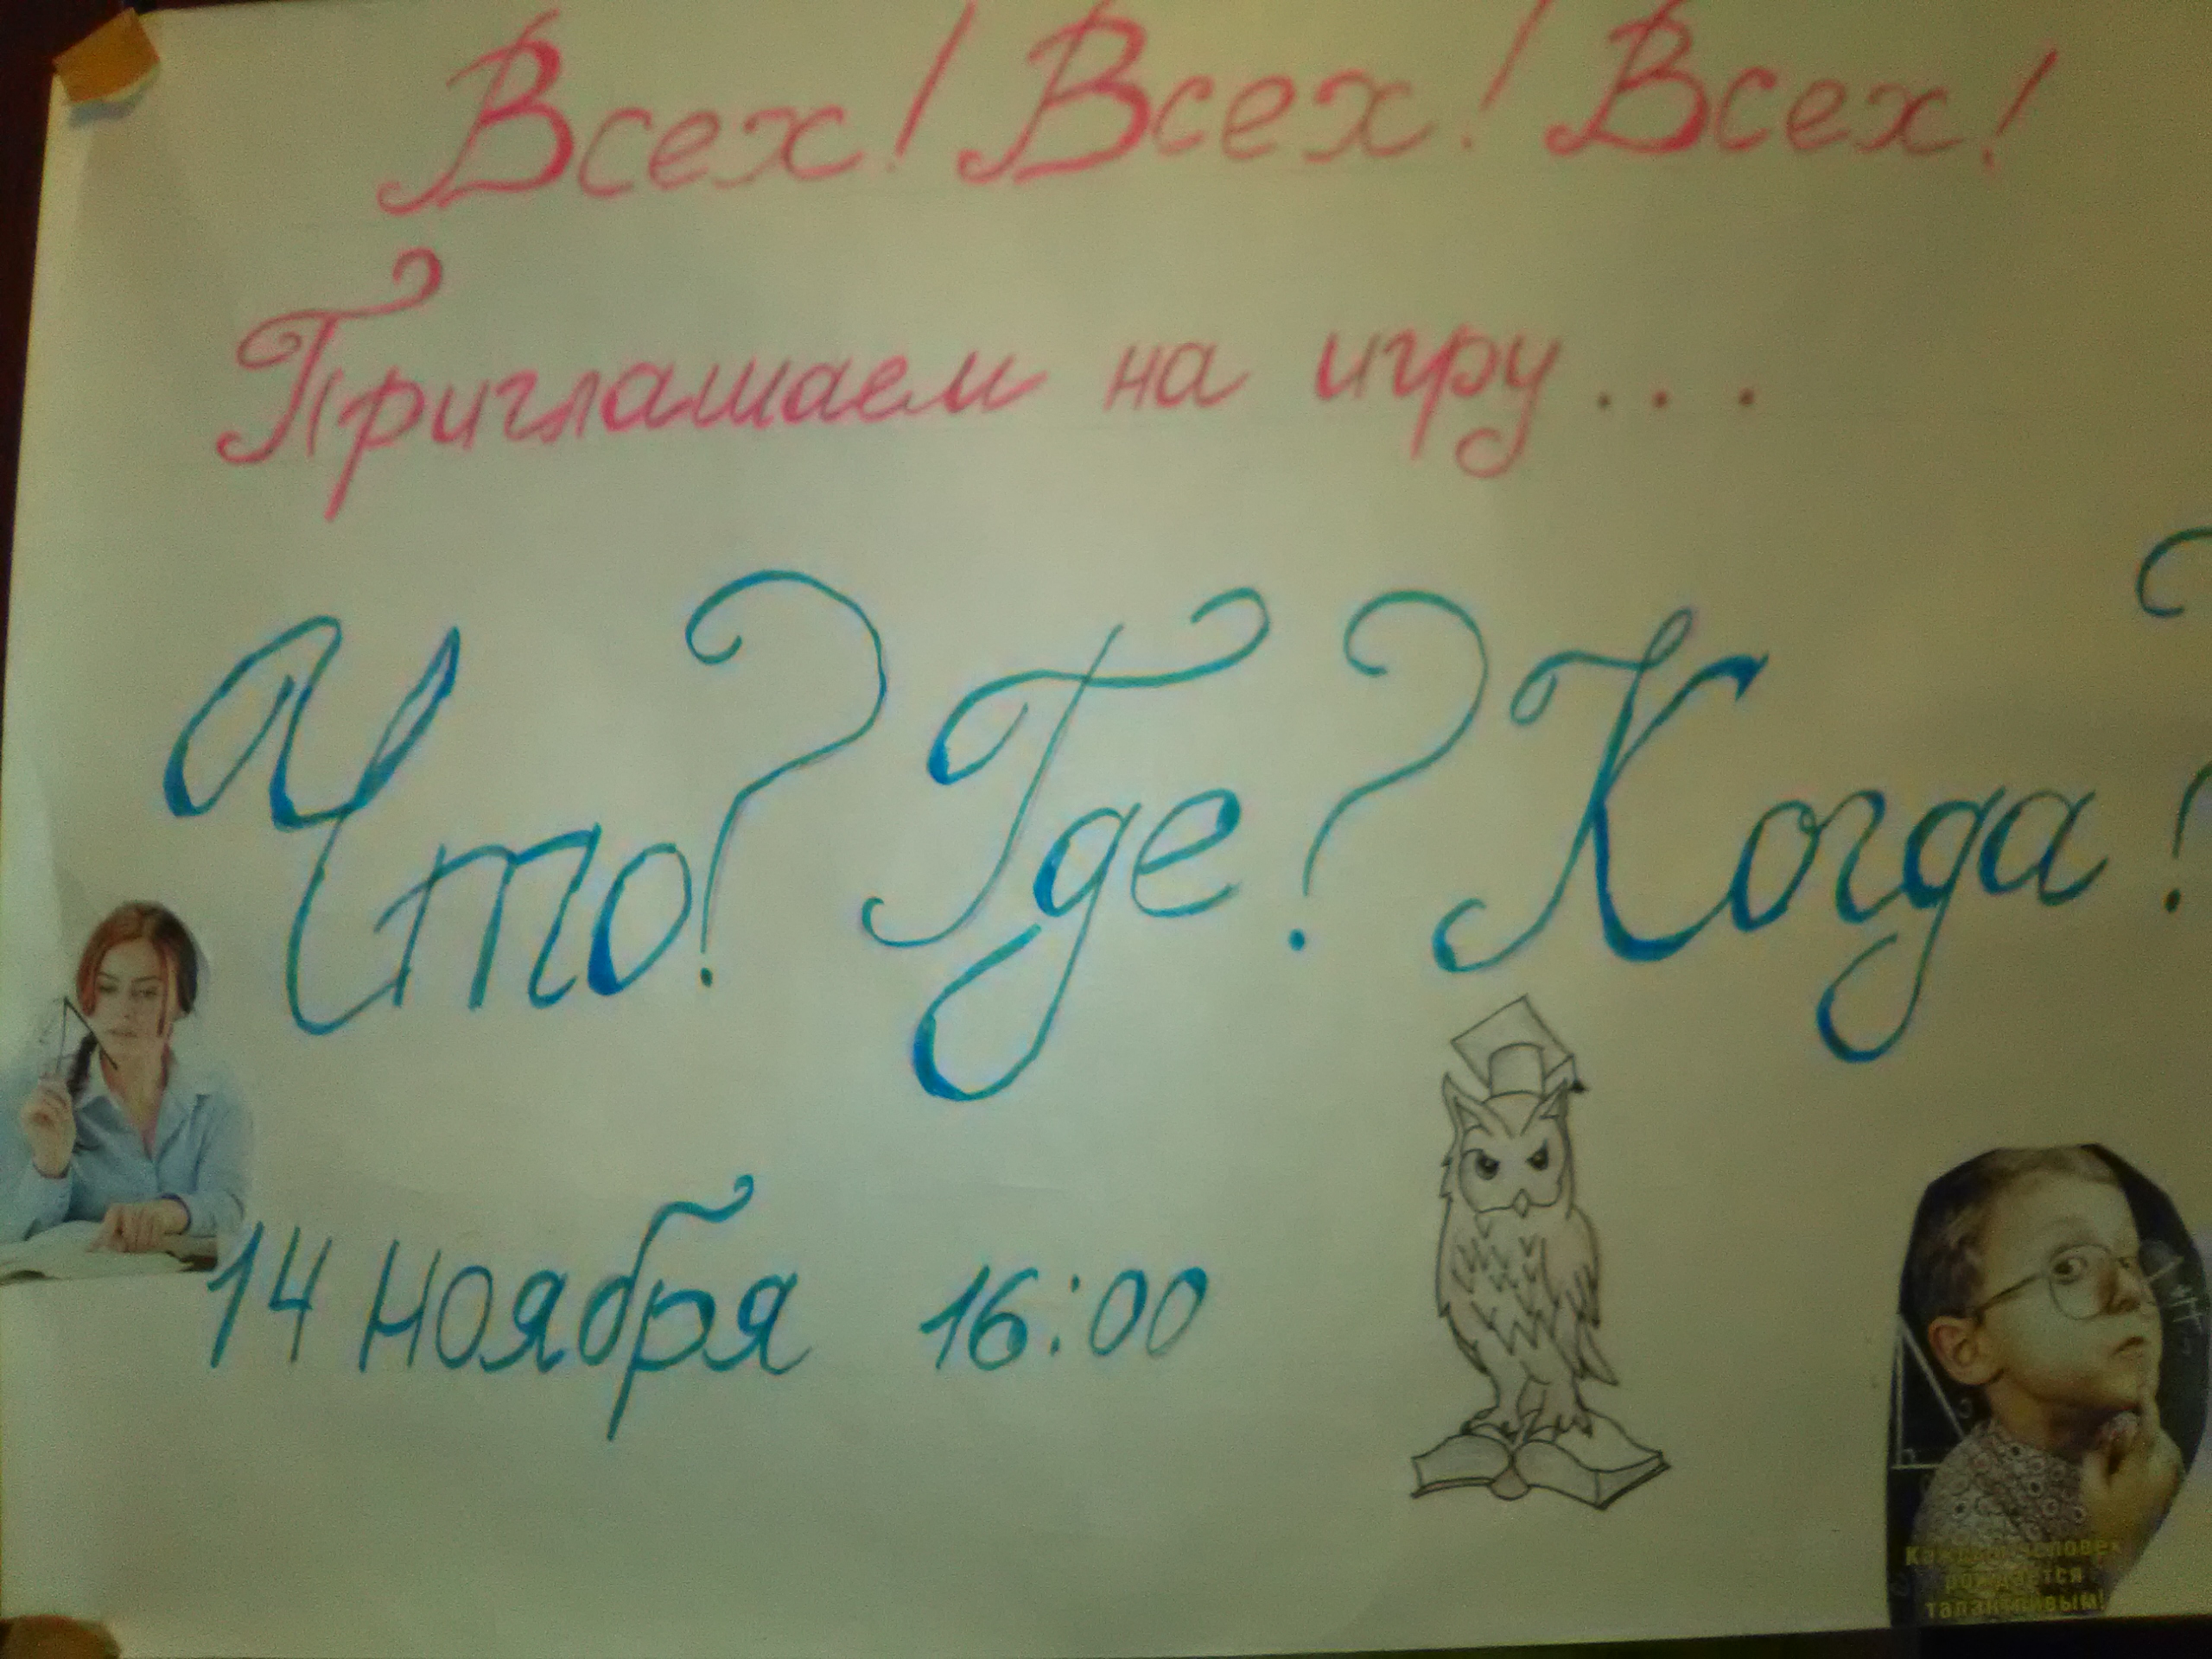 Всех! Всех! Всех!
Приглашаем на игру...
Что? Где? Когда?
14 ноября 16:00
Каждый человек
рождается
талантливым!